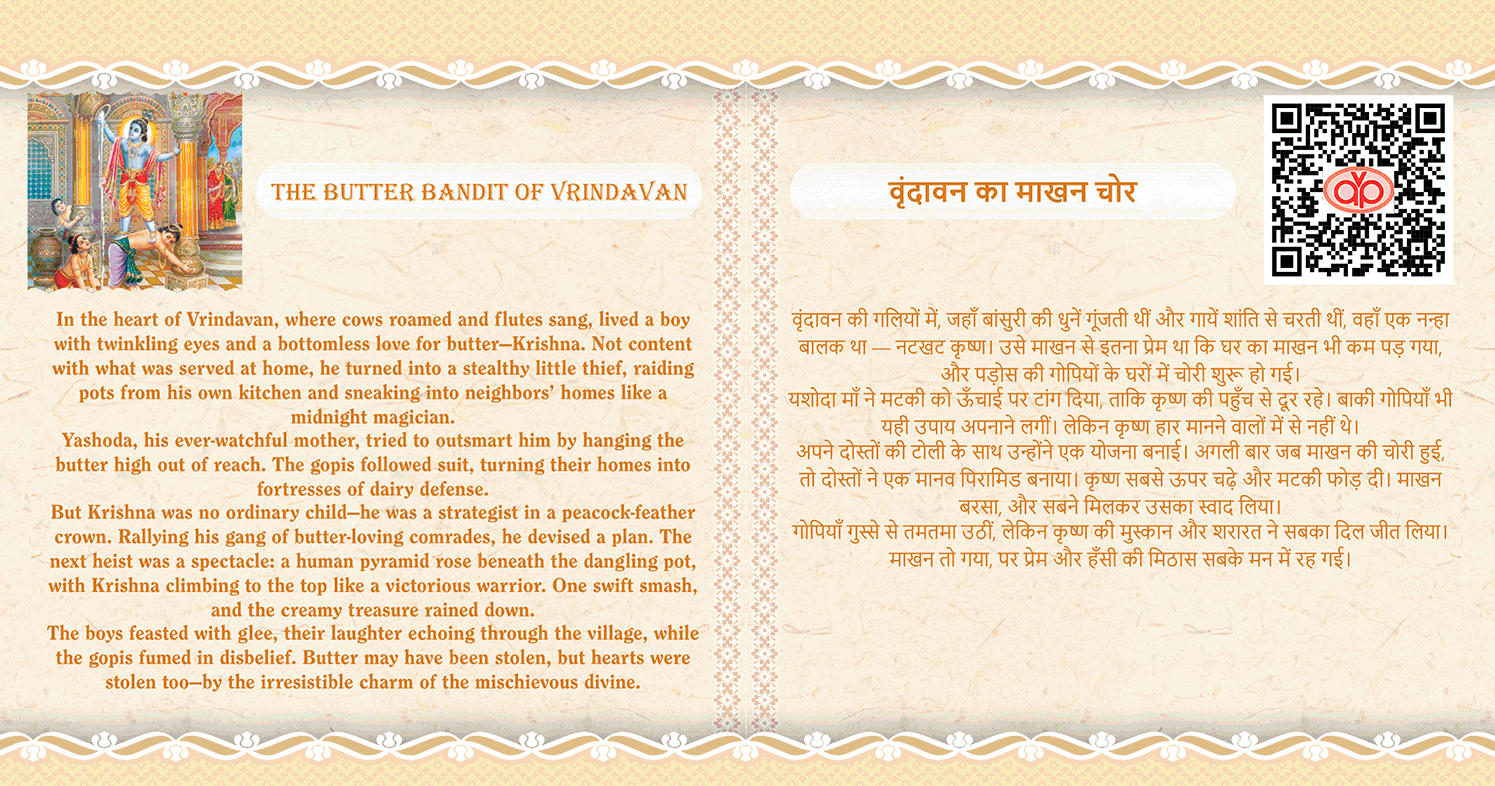 THE BUTTER BANDIT OF VRINDAVAN
In the heart of Vrindavan, where cows roamed and flutes sang, lived a boy
with twinkling eyes and a bottomless love for butter—Krishna. Not content
with what was served at home, he turned into a stealthy little thief, raiding
pots from his own kitchen and sneaking into neighbors’ homes like a
midnight magician.
Yashoda, his ever-watchful mother, tried to outsmart him by hanging the
butter high out of reach. The gopis followed suit, turning their homes into
fortresses of dairy defense.
But Krishna was no ordinary child—he was a strategist in a peacock-feather
crown. Rallying his gang of butter-loving comrades, he devised a plan. The
next heist was a spectacle: a human pyramid rose beneath the dangling pot,
with Krishna climbing to the top like a victorious warrior. One swift smash,
and the creamy treasure rained down.
The boys feasted with glee, their laughter echoing through the village, while
the gopis fumed in disbelief. Butter may have been stolen, but hearts were
stolen too—by the irresistible charm of the mischievous divine.
वृंदावन का माखन चोर
वृंदावन की गलियों में, जहाँ बांसुरी की धुनें गूंजती थीं और गायें शांति से चरती थीं, वहाँ एक नन्हा
बालक था — नटखट कृष्ण। उसे माखन से इतना प्रेम था कि घर का माखन भी कम पड़ गया,
और पड़ोस की गोपियों के घरों में चोरी शुरू हो गई।
यशोदा माँ ने मटकी को ऊँचाई पर टांग दिया, ताकि कृष्ण की पहुँच से दूर रहे। बाकी गोपियाँ भी
यही उपाय अपनाने लगीं। लेकिन कृष्ण हार मानने वालों में से नहीं थे।
अपने दोस्तों की टोली के साथ उन्होंने एक योजना बनाई। अगली बार जब माखन की चोरी हुई,
तो दोस्तों ने एक मानव पिरामिड बनाया। कृष्ण सबसे ऊपर चढ़े और मटकी फोड़ दी। माखन
बरसा, और सबने मिलकर उसका स्वाद लिया।
गोपियाँ गुस्से से तमतमा उठीं, लेकिन कृष्ण की मुस्कान और शरारत ने सबका दिल जीत लिया।
माखन तो गया, पर प्रेम और हँसी की मिठास सबके मन में रह गई।